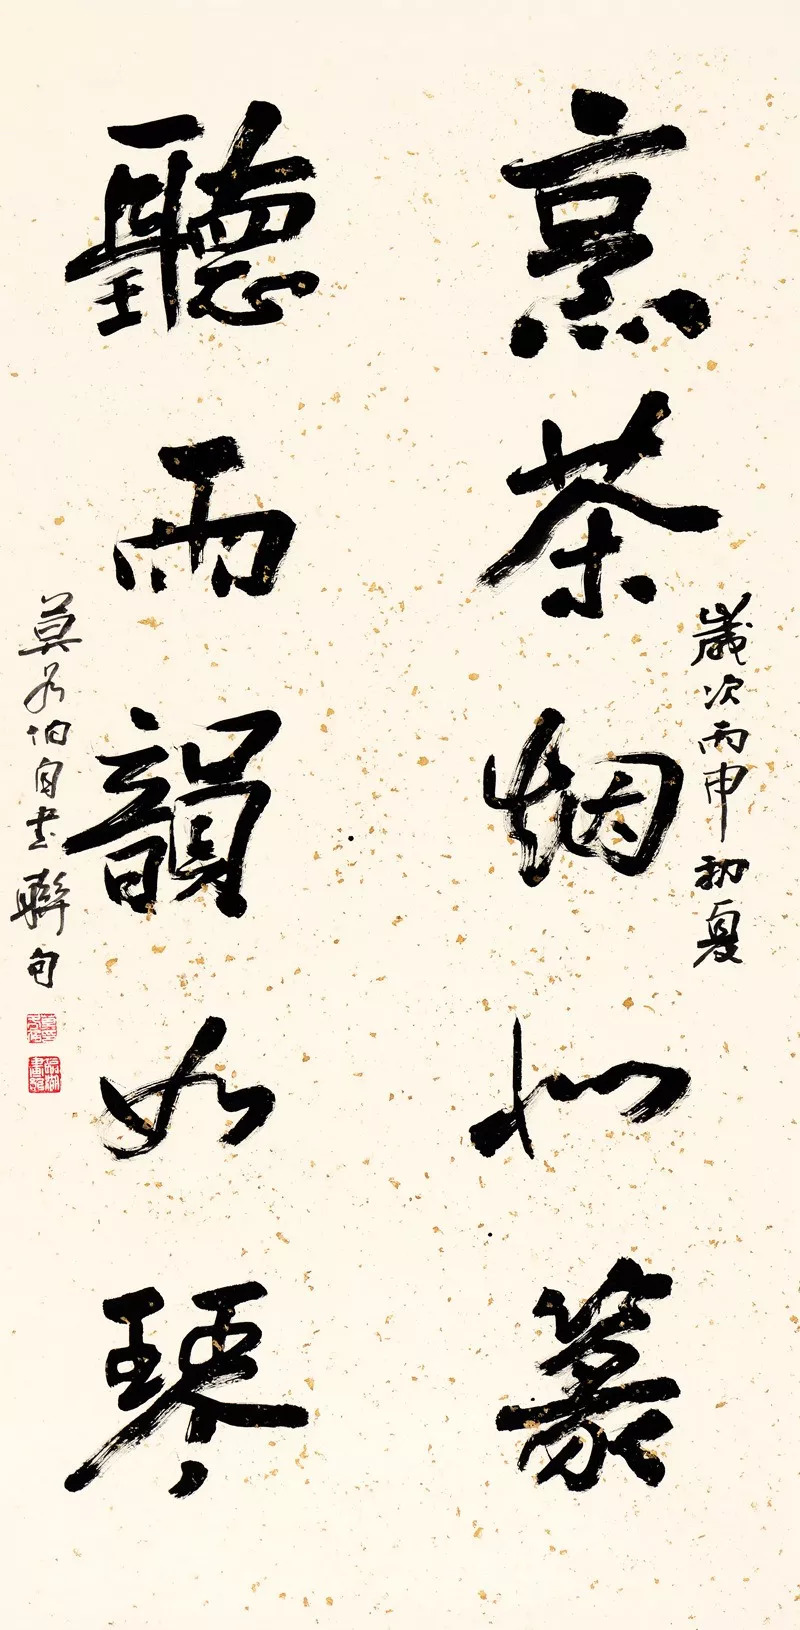 歲次丙申初夏
烹茶烟似篆
聽雨韻如琴
莫各伯自書聯句